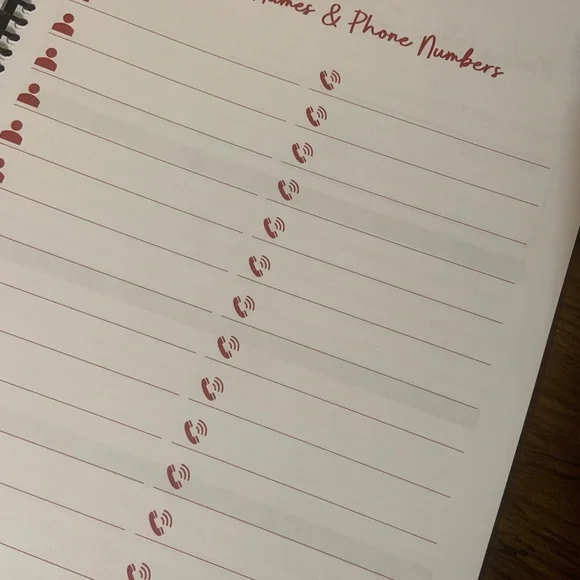 Names & Phone Numbers